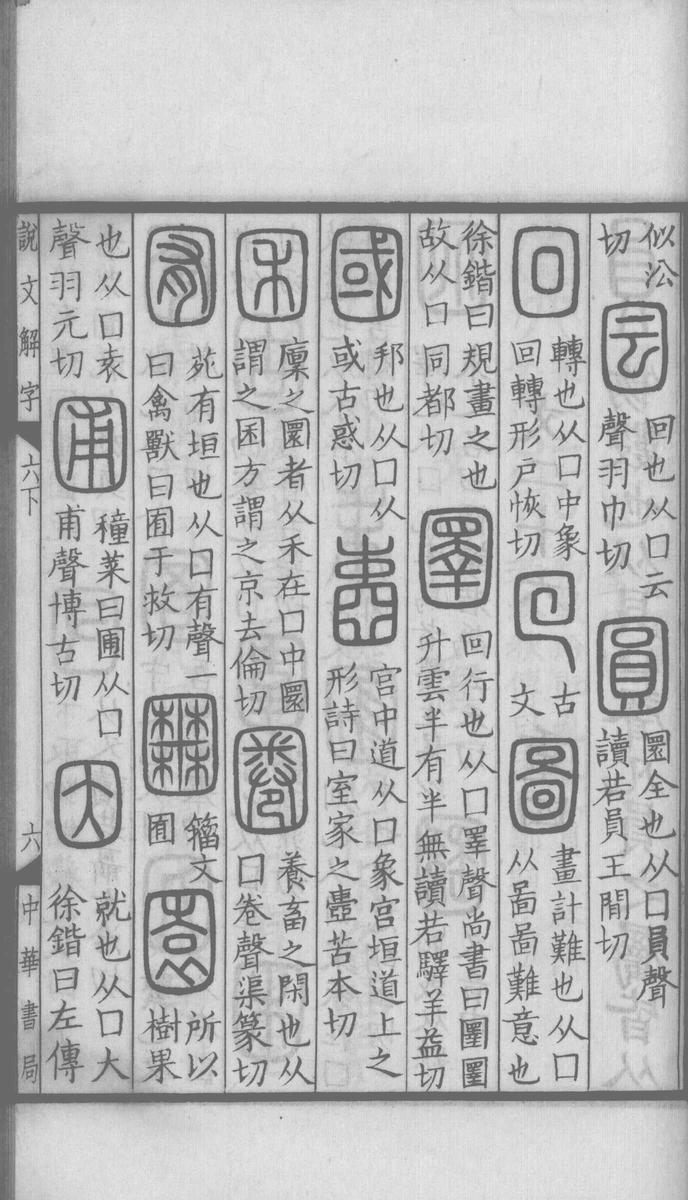 似㳂
切
囩
回也从囗云
聲羽巾切
圓
圜全也从囗員聲
讀若員王問切
回
轉也从囗中象
回轉形戶恢切
𡇌
古
文
圖
畫計難也从囗
从啚啚難意也
徐鍇曰規畫之也
故从囗同都切
圛
回行也从囗睪聲尚書曰圛圛
升雲半有半無讀若驛羊益切
國
邦也从囗从
或古惑切
壼
宮中道从囗象宮垣道上之
形詩曰室家之壼苦本切
囷
廩之圜者从禾在囗中圜
謂之囷方謂之京去倫切
圈
養畜之閑也从
囗卷聲渠篆切
囿
苑有垣也从囗有聲一
曰禽獸曰囿于救切
𡈸
籀文
囿
園
所以
樹果
也从囗袁
聲羽元切
圃
種菜曰圃从囗
甫聲博古切
因
就也从囗大
徐鍇曰左傳
說文解字
六下
六
中華書局